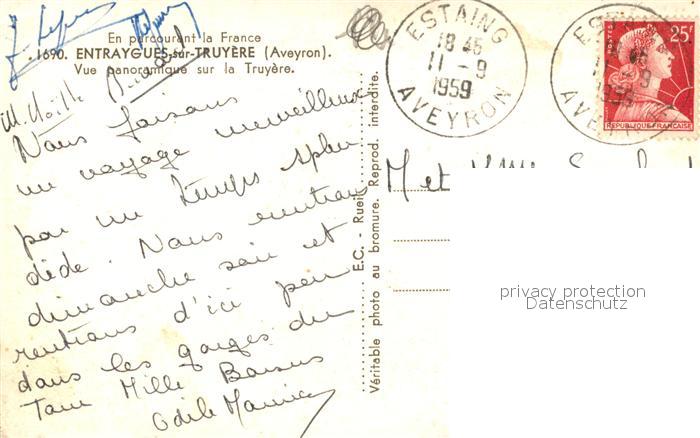 En parcourant la France
1690. ENTRAYGUES-sur-TRUYÈRE (Aveyron).
Vue panoramique sur la Truyère.
Nous faisons
un voyage merveilleux
par un temps splen
dide. Nous rentrons
dimanche soir et
rentrons d'ici peu
dans les gorges du
Tarn Mille Baisers
Odile Maurice
E.C. - Rueil
Véritable photo au bromure. Reprod. interdite.
ESTAING
18 45
11 - 9
1959
AVEYRON
ESTAING
11 - 9
1959
AVEYRON
POSTES
25F
REPUBLIQUE FRANÇAISE
M et Mme
privacy protection
Datenschutz